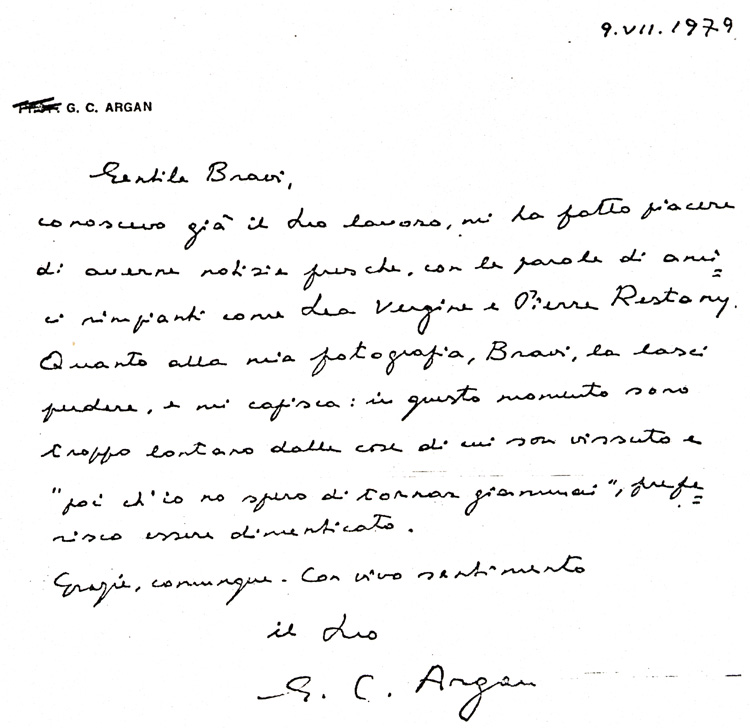 9.VII.1979
PROF. G. C. ARGAN
Gentile Bravi,
conoscevo già il Suo lavoro, mi ha fatto piacere
di averne notizie fresche, con le parole di ami=
ci rimpianti come Lea Vergine e Pierre Restany.
Quanto alla mia fotografia, Bravi, la lasci
perdere, e mi capisca: in questo momento sono
troppo lontano dalle cose di cui son vissuto e
"poi ch'io no spero di tornar giammai", prefe=
risco essere dimenticato.
Grazie, comunque. Con vivo sentimento
il Suo
G. C. Argan